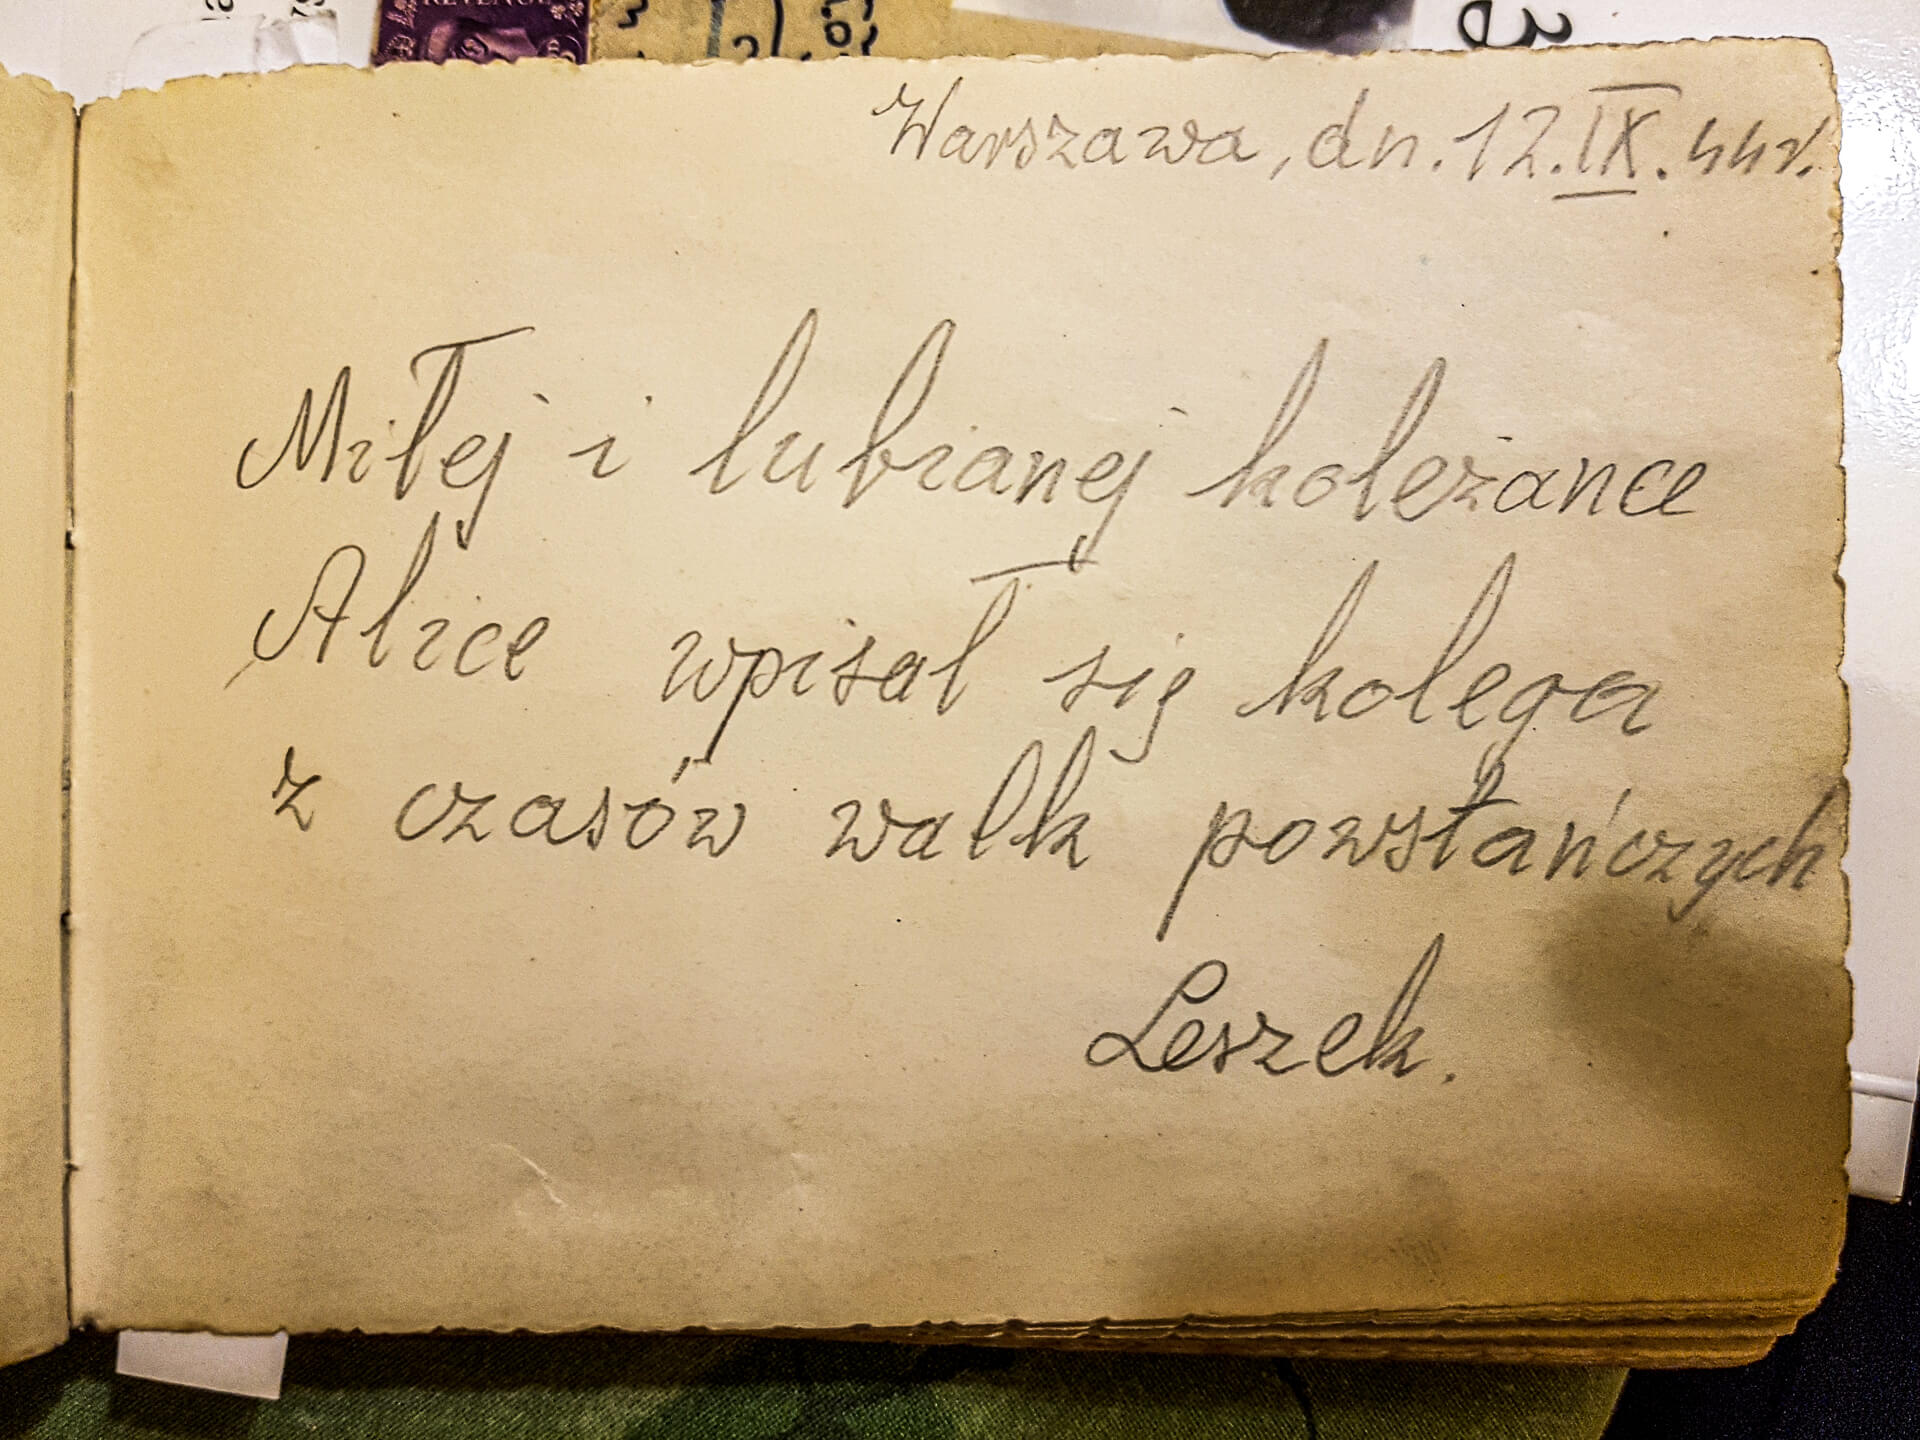 REVENUE
Warszawa, dn. 12.IX.44r.
Miłej i lubianej koleżance
Alice wpisał się kolega
z czasów walk powstańczych
Leszek.